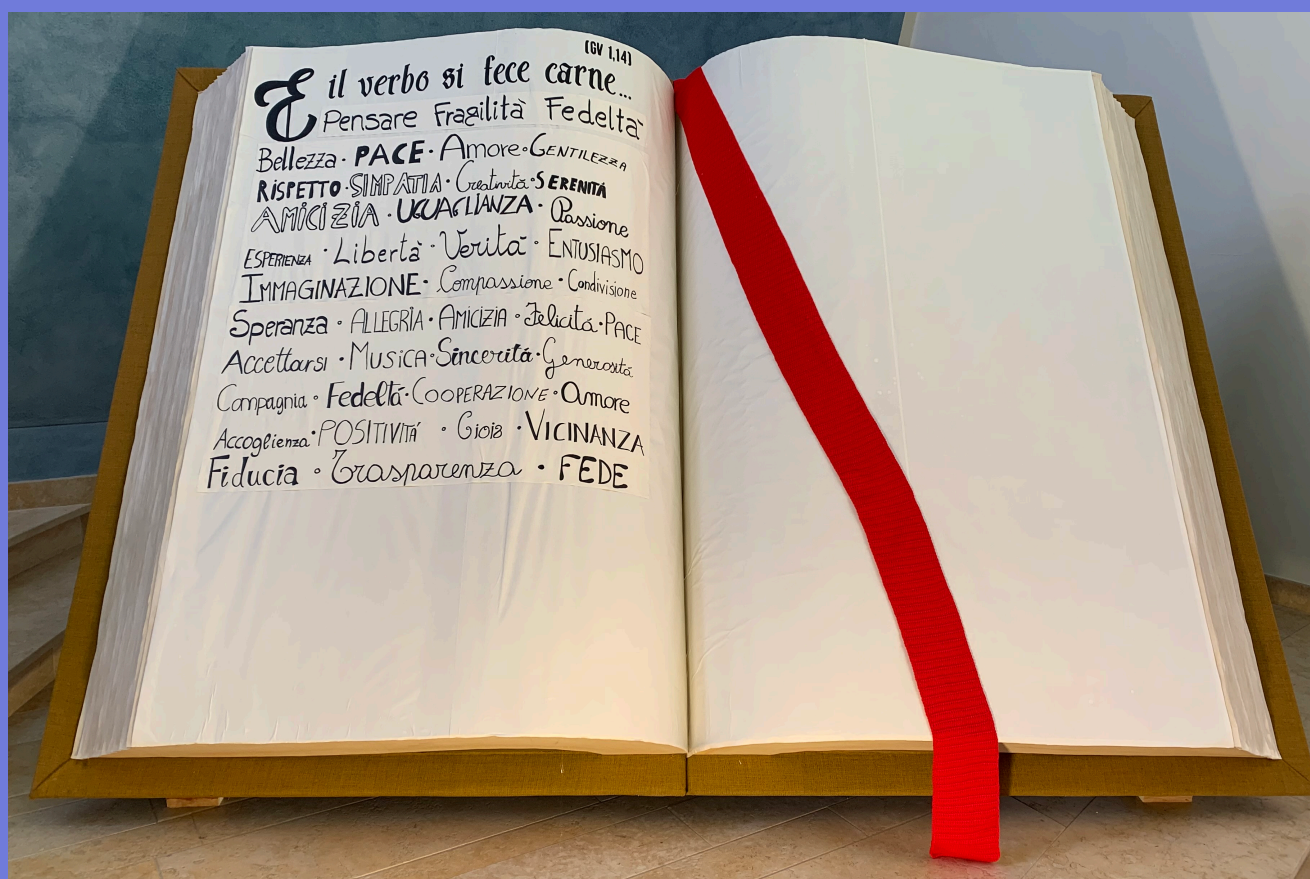 (GV 1,14)
E il verbo si fece carne...
Pensare Fragilità Fedeltà
Bellezza · PACE · Amore · GENTILEZZA
RISPETTO · SIMPATIA · Creatività · SERENITÁ
AMICIZIA · UGUAGLIANZA · Passione
ESPERIENZA · Libertà · Verità · ENTUSIASMO
IMMAGINAZIONE · Compassione · Condivisione
Speranza · ALLEGRIA · AMICIZIA · Felicitá · PACE
Accettarsi · MUSICA · Sinceritá · Generositá
Compagnia · Fedeltá · COOPERAZIONE · Amore
Accoglienza · POSITIVITÁ · Gioia · VICINANZA
Fiducia · Trasparenza · FEDE